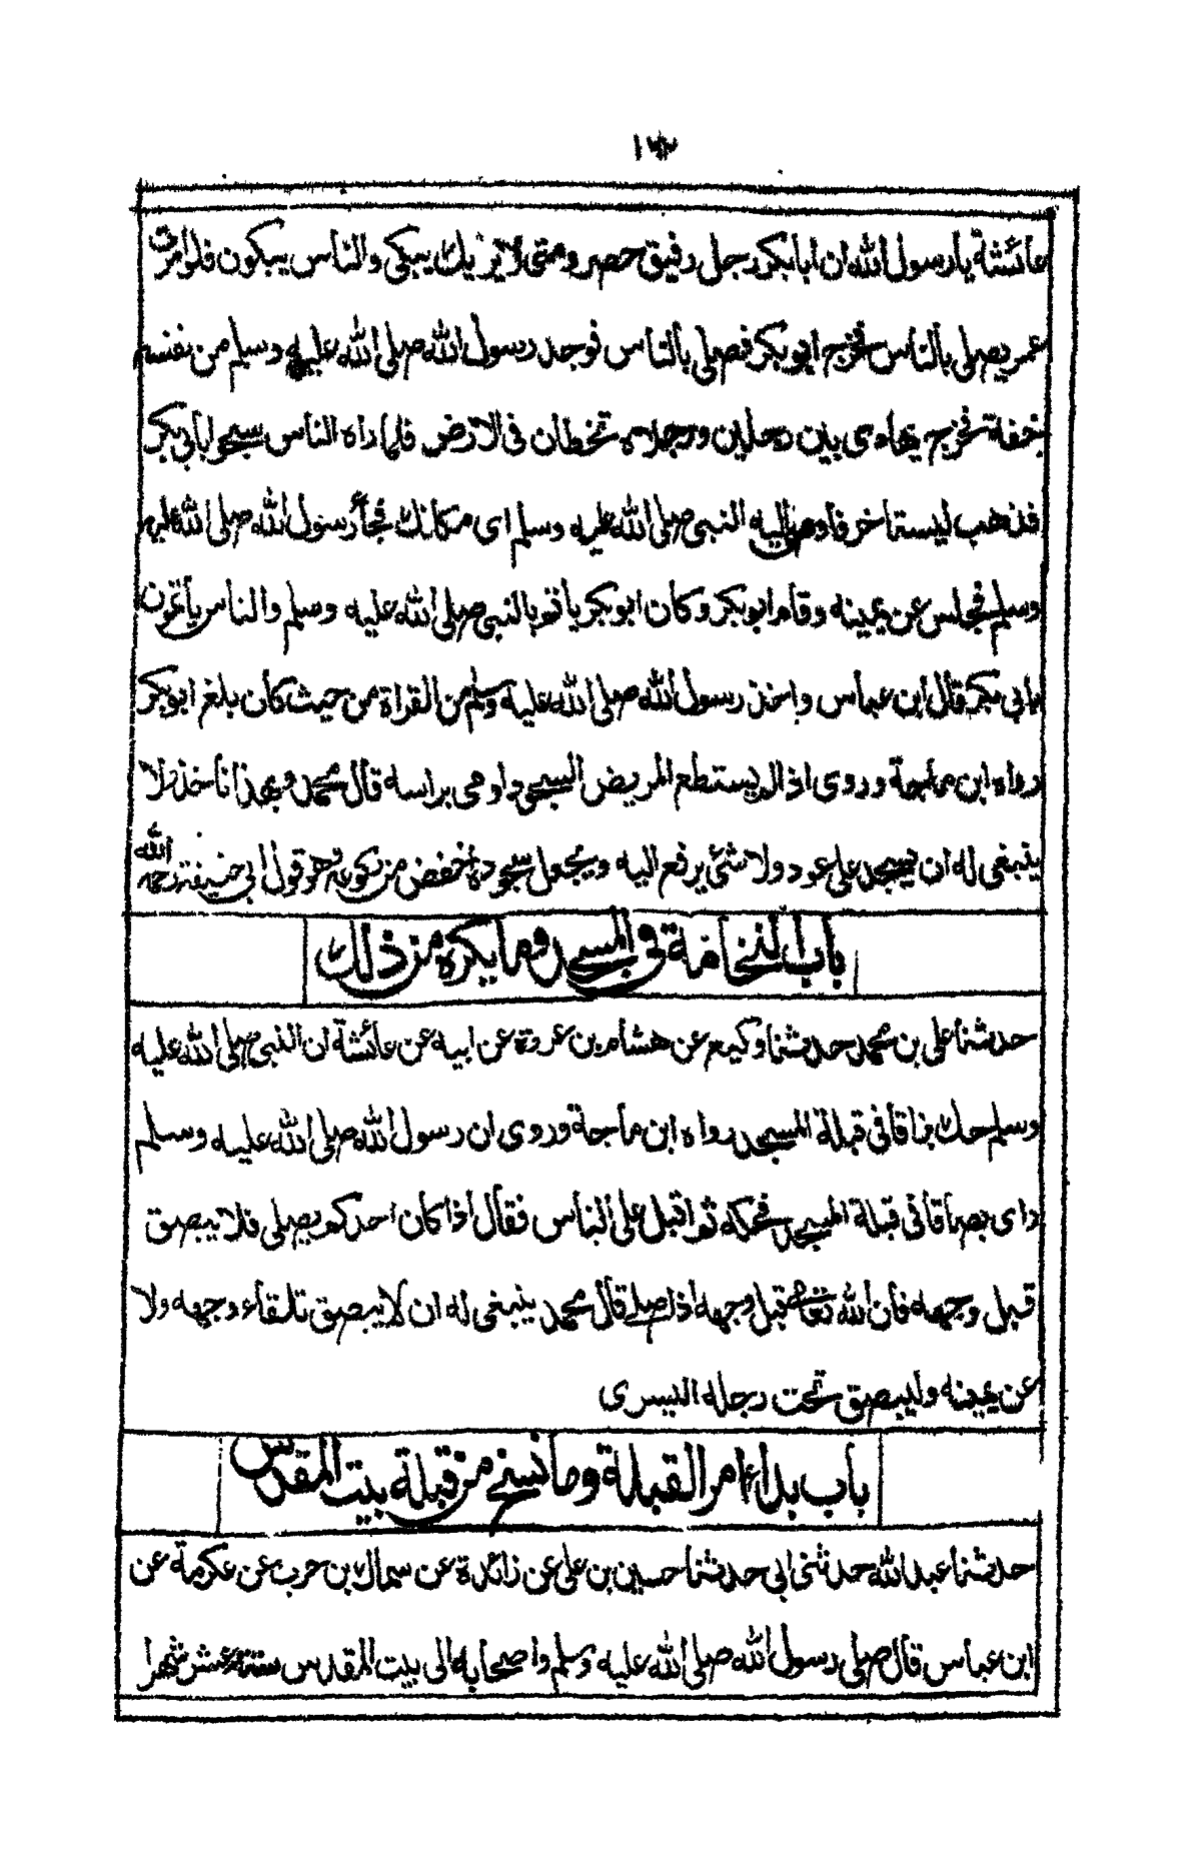 ١٤٣
عائشة يا رسول الله ان ابا بكر رجل رقيق حصر ومتى لا يريك يبكى والناس يبكون فلو امرت
عمر يصلى بالناس فخرج ابو بكر فصلى بالناس فوجد رسول الله صلى الله عليه وسلم من نفسه
خفة فخرج يهادى بين رجلين ورجلاه تخطان فى الارض فلما راه الناس سبحوا بابى بكر
فذهب ليستاخر فاومى اليه النبى صلى الله عليه وسلم اى مكانك فجاء رسول الله صلى الله عليه
وسلم فجلس عن يمينه وقام ابو بكر وكان ابو بكر ياتم بالنبى صلى الله عليه وسلم والناس ياتمون
بابى بكر قال ابن عباس واخذ رسول الله صلى الله عليه وسلم من القراة من حيث كان بلغ ابو بكر
رواه ابن ماجة وروى اذا لم يستطع المريض السجود اومى براسه قال محمد وبهذا ناخذ ولا
ينبغى له ان يسجد على عود ولا شئ يرفع اليه ويجعل سجوده اخفض من ركوعه وهو قول ابى حنيفة رحمه الله
باب النخامة فى المسجد وما يكره من ذلك
حدثنا على بن محمد حدثنا وكيع عن هشام بن عروة عن ابيه عن عائشة ان النبى صلى الله عليه
وسلم حك بزاقا فى قبلة المسجد رواه ابن ماجة وروى ان رسول الله صلى الله عليه وسلم
راى بصاقا فى قبلة المسجد فحكه ثم اقبل على الناس فقال اذا كان احدكم يصلى فلا يبصق
قبل وجهه فان الله تعالى قبل وجهه اذا صلى قال محمد ينبغى له ان لا يبصق تلقاء وجهه ولا
عن يمينه وليبصق تحت رجله اليسرى
باب بداء امر القبلة وما نسخ من قبلة بيت المقدس
حدثنا عبد الله حدثنى ابى حدثنا حسين بن على عن زائدة عن سماك بن حرب عن عكرمة عن
ابن عباس قال صلى رسول الله صلى الله عليه وسلم واصحابه الى بيت المقدس ستة عشر شهرا